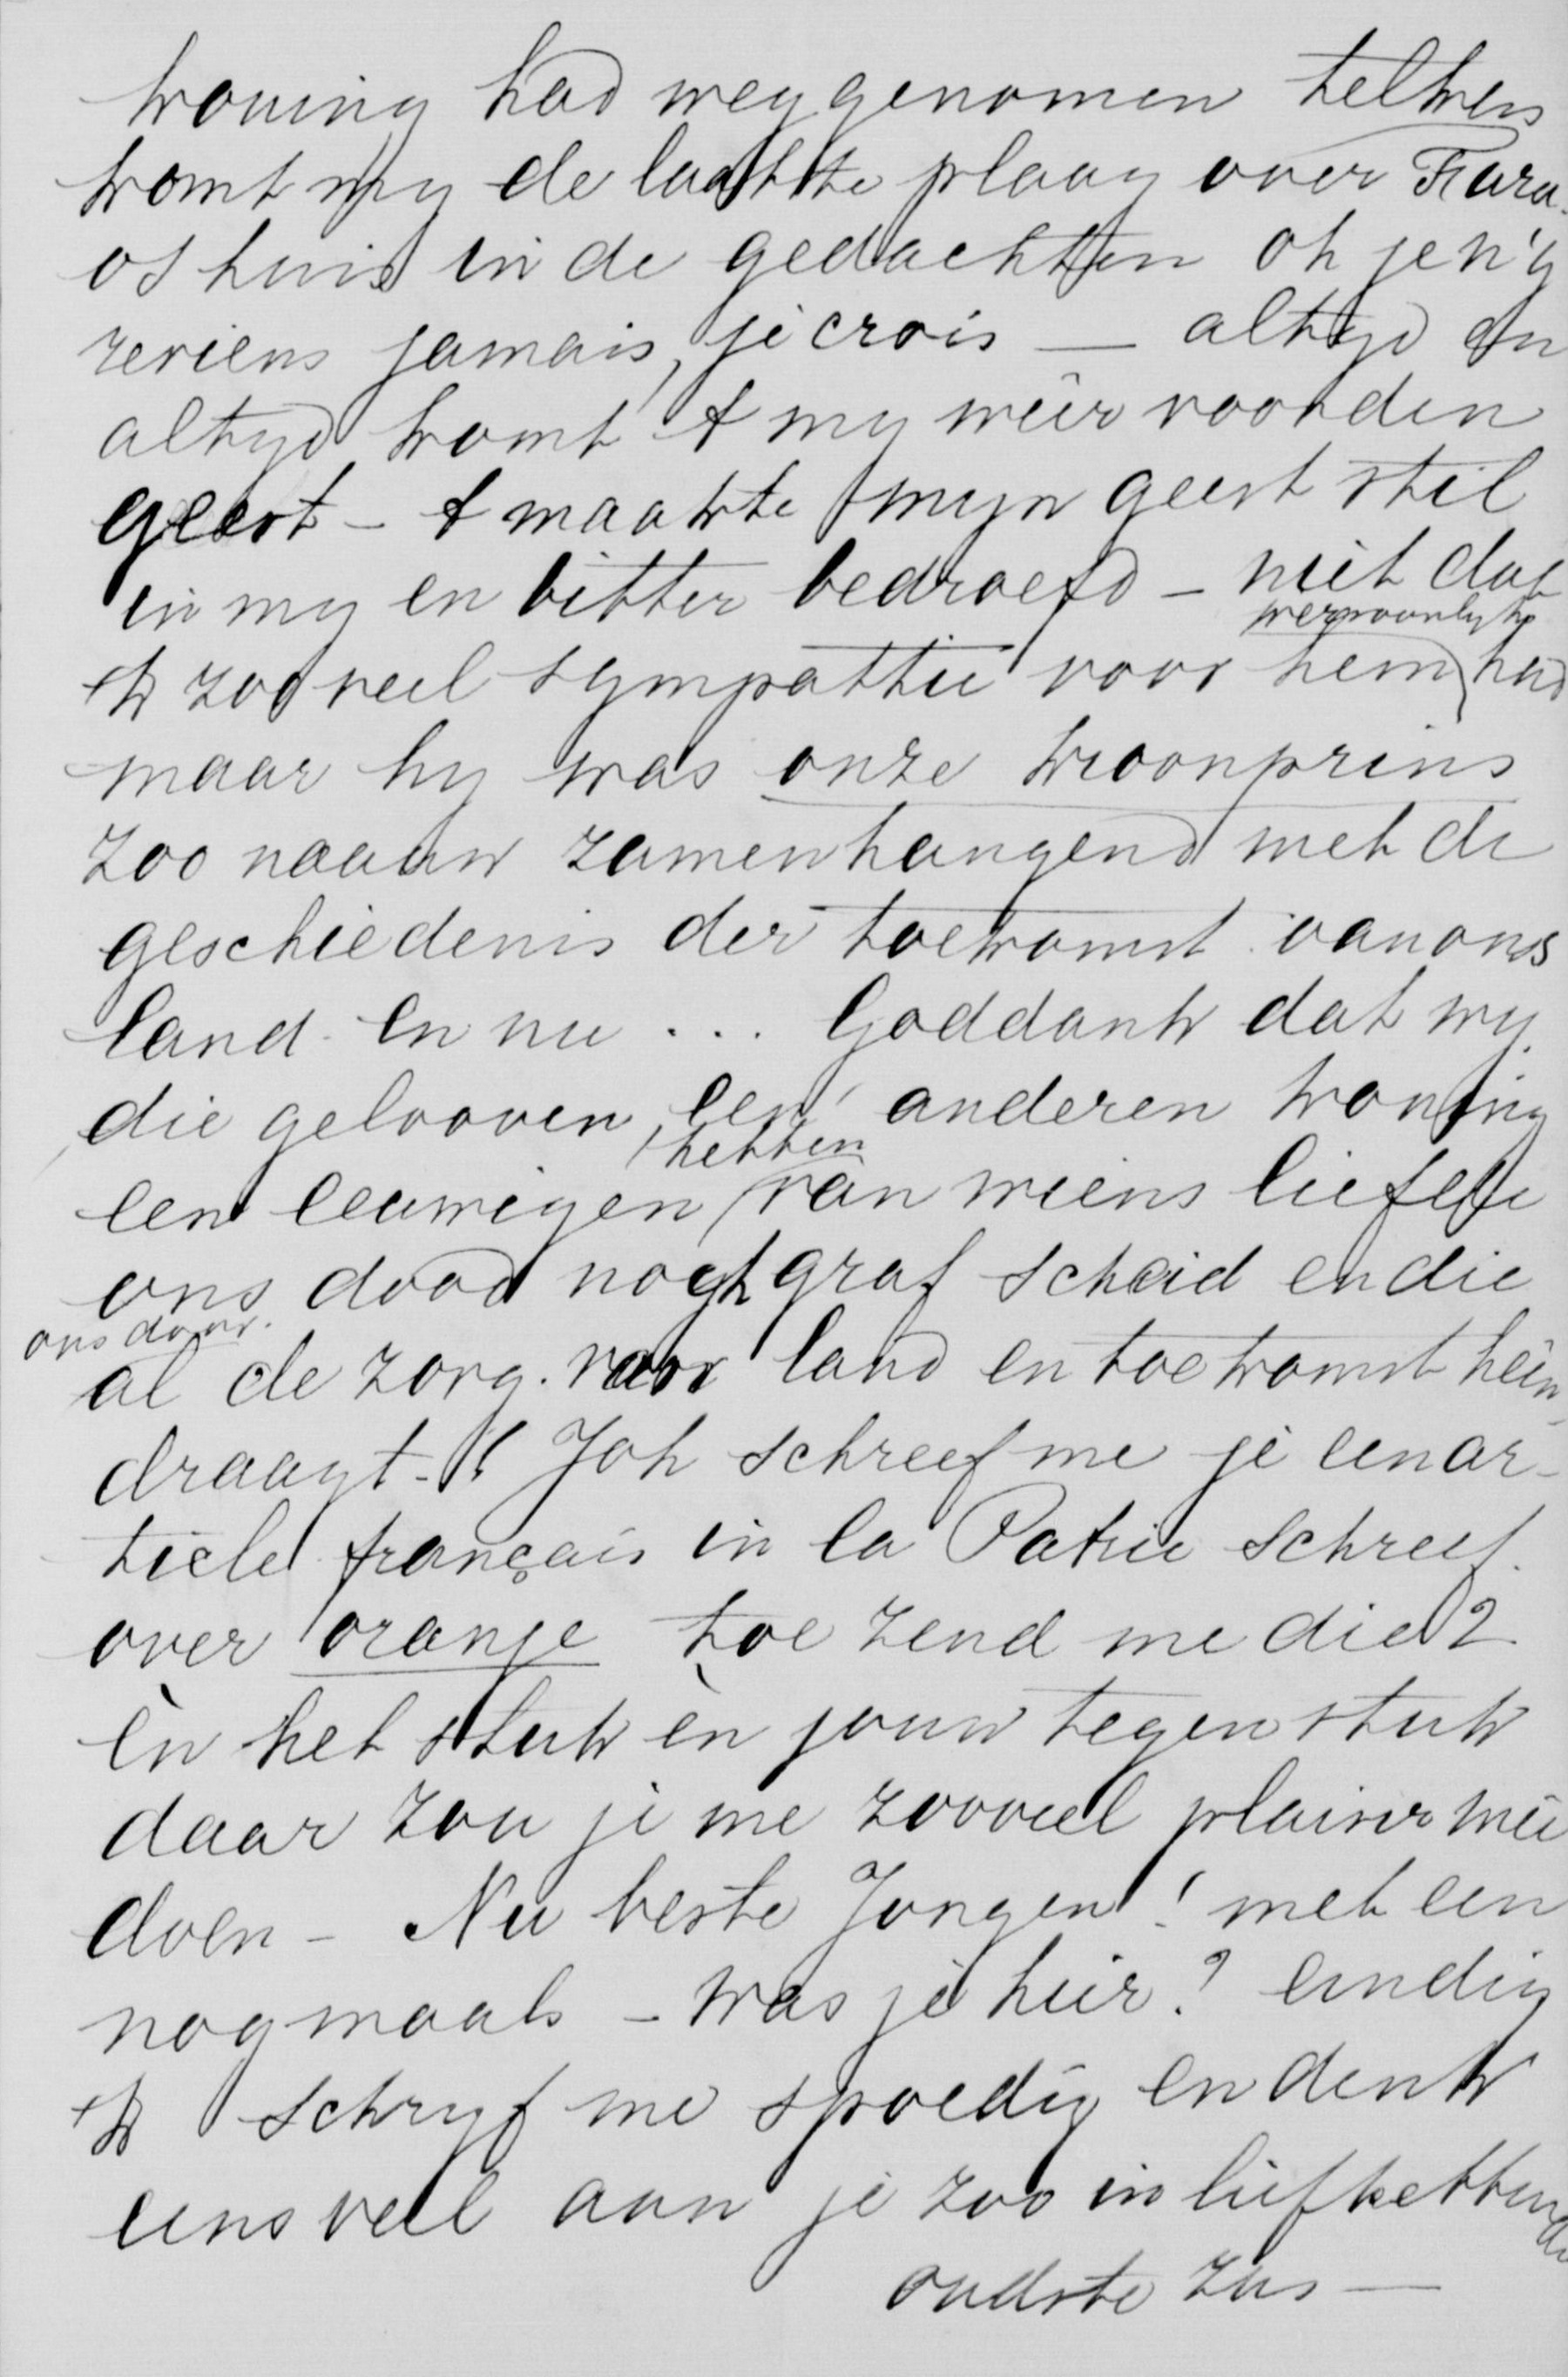 koning had weggenomen telkens
komt my de laatste plaag over Fara-
os huis in de gedachten oh je n'y
reviens jamais, je crois — altyd en
altyd komt 't my wêer voor den
geest - 't maakte myn geest stil
in my en bitter bedroefd - niet dat
persoonlyk
ik zoo veel sympathie voor hem had
maar hy was onze kroonprins
zoo naauw zamenhangend met de
geschiedenis der toekomst van ons
land. En nu ... Goddank dat wy
die gelooven, een anderen koning
hebben
een eeuwigen van wiens liefde
ons dood noch graf scheid en die
ons door
al de zorg voor land en toekomst hêen
draagt -! Joh schreef me je een ar-
ticle français in la Patrie schreef
over oranje toe zend me die?
èn het stuk èn jouw tegenstuk
daar zou je me zooveel plaisir mêe
doen - Nu beste Jongen! met een
nogmaals - was je hier? eindig
ik schryf me spoedig en denk
eens veel aan je zoo in liefhebbende
oudste zus —